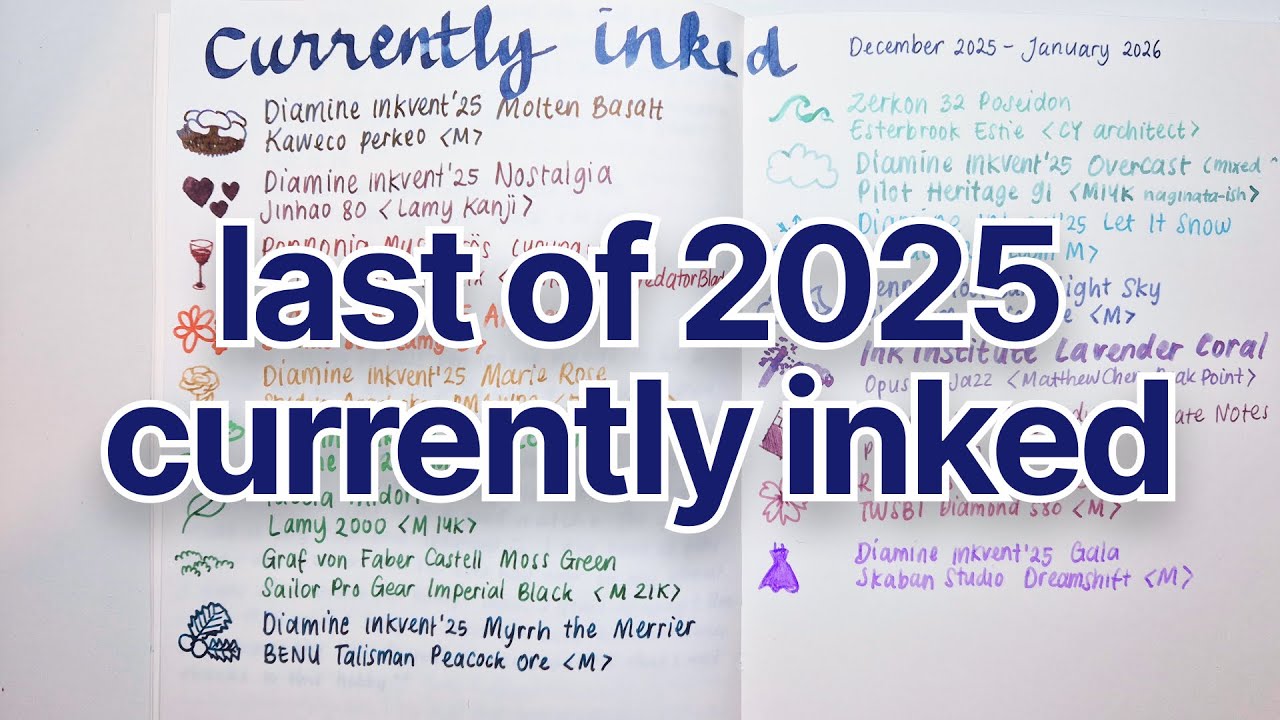 Currently inked
Diamine Inkvent'25 Molten Basalt
Kaweco Perkeo <M>
Diamine Inkvent'25 Nostalgia
Jinhao 80 <Lamy Kanji>
Diamine Inkvent'25 Marie Rose
Lamy 2000 <M 14K>
Graf von Faber Castell Moss Green
Sailor Pro Gear Imperial Black <M 21K>
Diamine Inkvent'25 Myrrh the Merrier
BENU Talisman Peacock Ore <M>
December 2025 - January 2026
Zerkon 32 Poseidon
Esterbrook Estie <CY architect>
Diamine Inkvent'25 Overcast (mixed
Pilot Heritage 91 <M14K naginata-ish>
Let It Snow
M>
Night Sky
<M>
Ink Institute Lavender Coral
Opus Jazz <MatthewChen Peak Point>
Notes
TWSBI Diamond 580 <M>
Diamine Inkvent'25 Gala
Skaban Studio Dreamshift <M>
last of 2025
currently inked